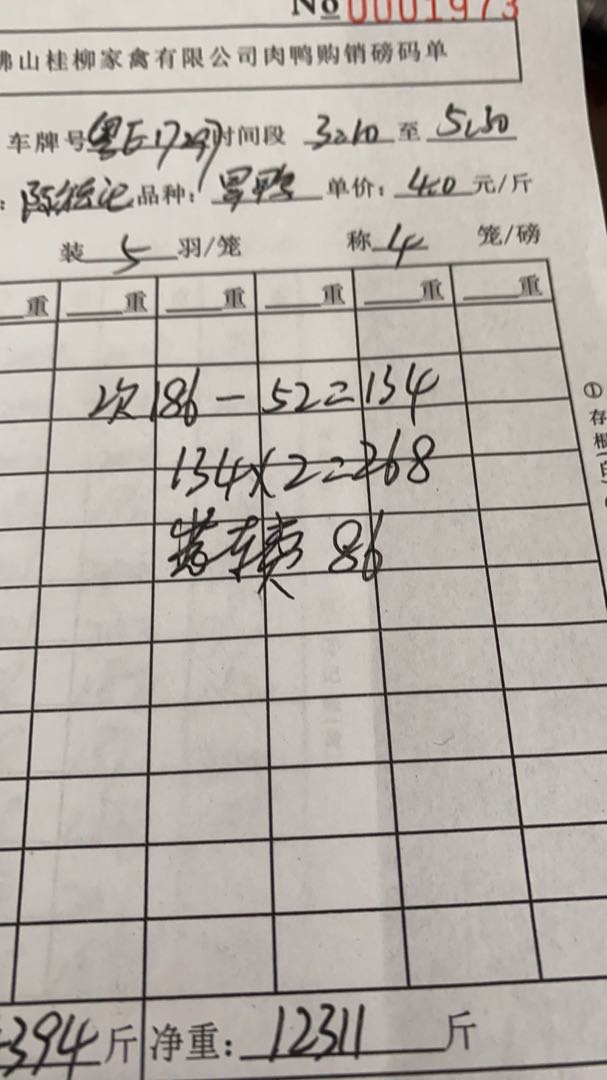 No 0001973
佛山桂柳家禽有限公司肉鸭购销磅码单
车牌号粤E17297时间段 3:10 至 5:30
品种： 单价：4.0 元/斤
装 5 羽/笼 称 4 笼/磅
重 重 重 重 重 重
次186-52=134
134×2=268
车费 86
394斤 净重：12311 斤
①存根(白)